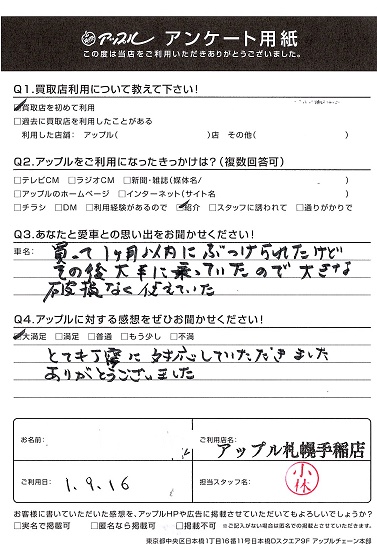 アップル アンケート用紙
この度は当店をご利用いただきありがとうございました。
Q1.買取店利用について教えて下さい!
☑買取店を初めて利用
□過去に買取店を利用したことがある
利用した店舗: アップル( )店 その他( )
Q2.アップルをご利用になったきっかけは?(複数回答可)
□テレビCM □ラジオCM □新聞・雑誌(媒体名/ )
□アップルのホームページ □インターネット(サイト名 )
□チラシ □DM □利用経験があるので ☑紹介 □スタッフに誘われて □通りがかりで
Q3.あなたと愛車との思い出をお聞かせください!
車名:
買って1ヶ月以内にぶつけられたけど
その後大事に乗っていたので大きな
破損なく使えていた
Q4.アップルに対する感想をぜひお聞かせください!
☑大満足 □満足 □普通 □もう少し □不満
とても丁寧に対応していただきました
ありがとうございました
お名前:
ご利用店名:
アップル札幌手稲店
ご利用日:
1.9.16
担当スタッフ名:
小林
お客様に書いていただいた感想を、アップルHPや広告に掲載させていただいてもよろしいでしょうか?
□実名で掲載可 □匿名なら掲載可 □掲載不可 ※ご記入がない場合は匿名での掲載とさせていただきます。
東京都中央区日本橋1丁目16番11号日本橋Dスクエア9F アップルチェーン本部